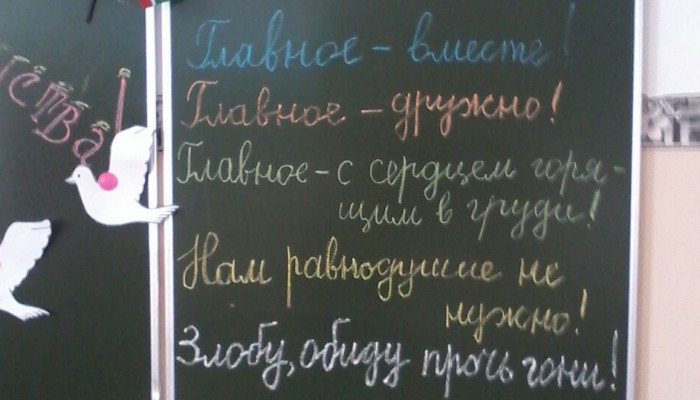 ства!
Главное - вместе!
Главное - дружно!
Главное - с сердцем горя-
щим в груди!
Нам равнодушие не
нужно!
Злобу, обиду прочь гони!